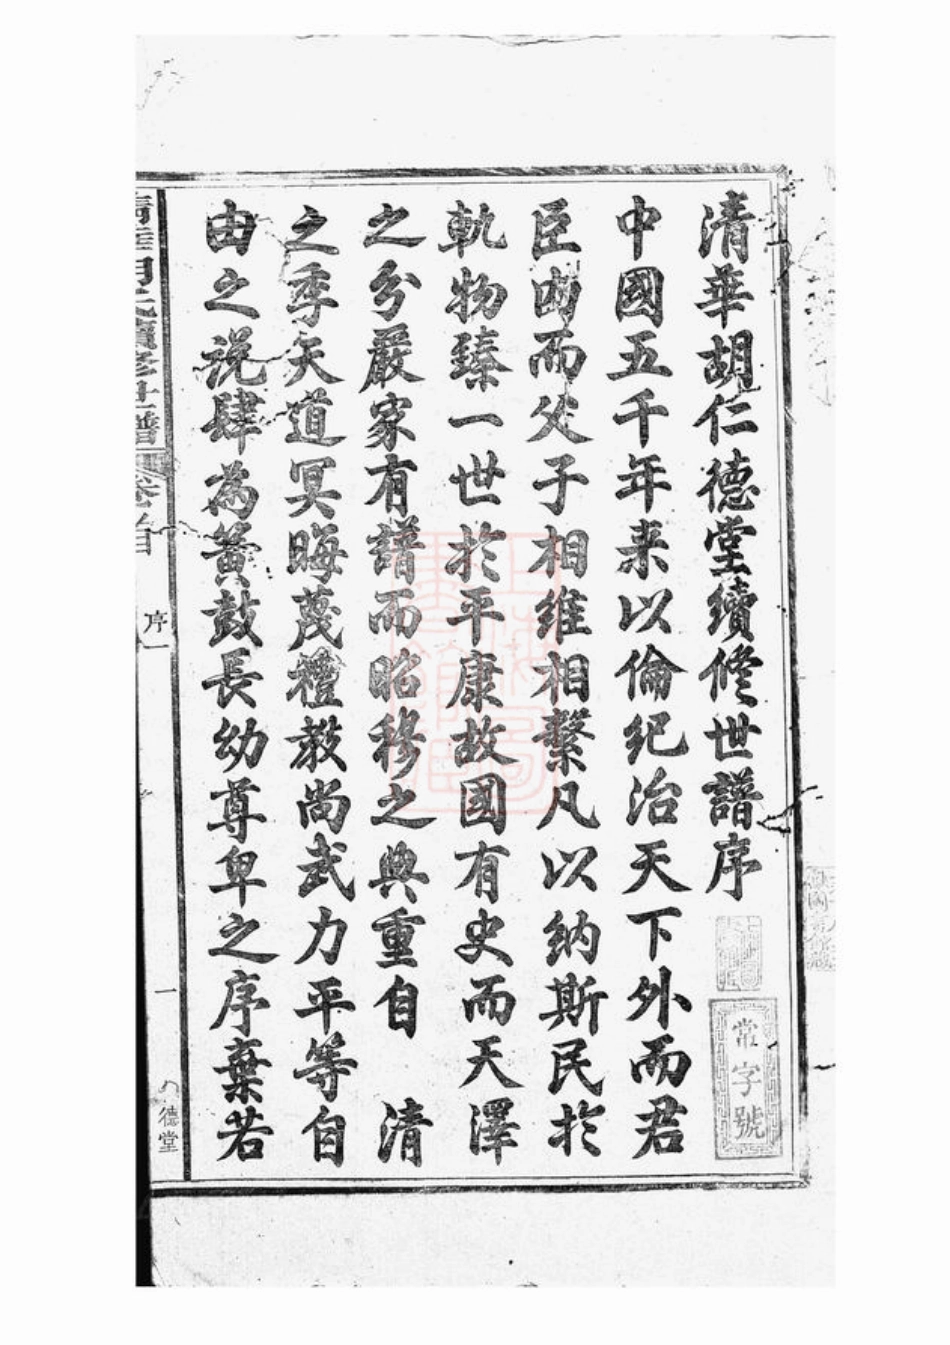 清華胡仁德堂續修世譜序
常字號
中國五千年来以倫紀治天下外而君
臣內而父子相維相繫凡以納斯民於
軌物臻一世於平康故國有史而天澤
之分嚴家有譜而昭穆之典重自 清
之季天道冥晦蔑禮教尚武力平等自
由之説肆為簧鼓長幼尊卑之序棄若
清華胡氏續修世譜 卷首 序一 一 德堂